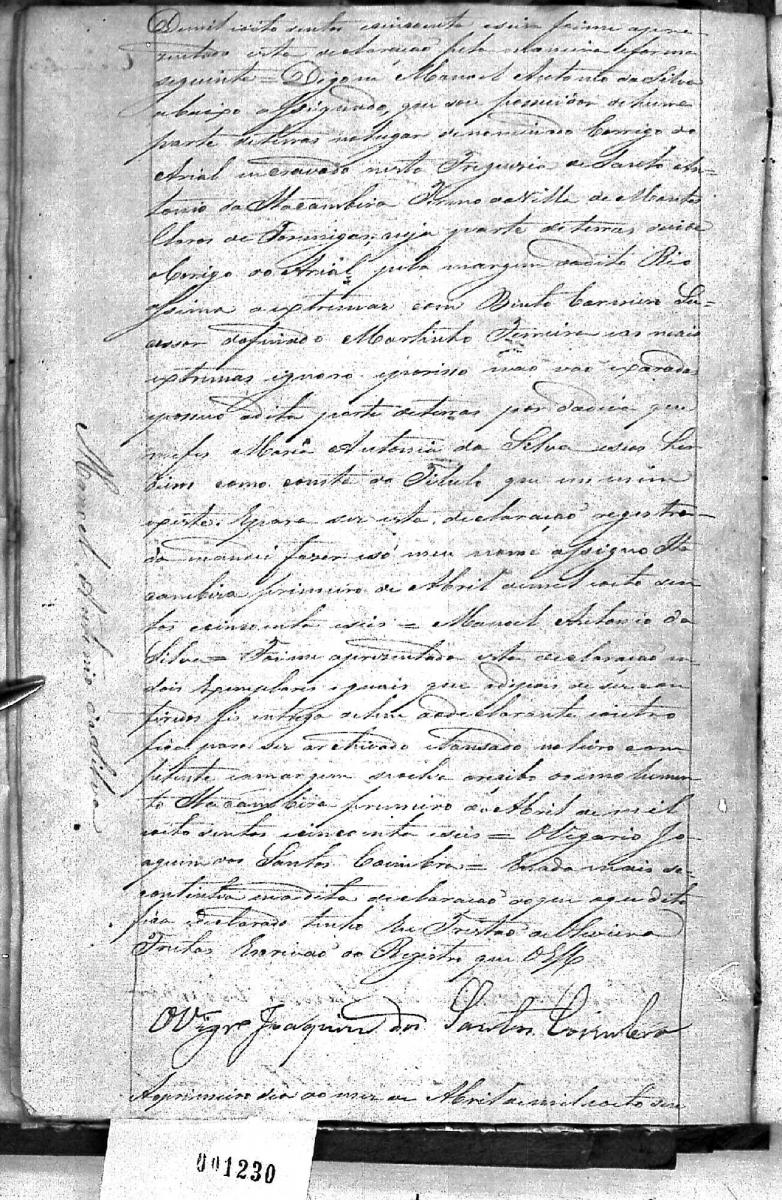 De mil oito sentos e sincoenta e seis foi me apre-
zentada esta declaração pela maneira e forma
seguinte = Digo eu Manoel Antonio da Silva
abaixo assignado, que sou possuidor de huma
parte de terras no lugar denominado Corrigo do
Arial encravado nesta Freguezia de Santo An-
tonio da Itacambira Termo da Villa de Montes
Claros de Formigas, cuja parte de terras
o Corrigo do Arial pela margem do dito Rio
assima a extremar com Bento Carneiro Su-
cessor do finado Martinho Ferreira e as mais
extremas ignoro e por isso não vão exaradas
e possuo a dita parte de terras por que
me fes Maria Antonia da Silva e seos her
deiros como consta do Titulo que em meu
existe. E para ser esta declaração registra-
da mandei fazer e só meu nome assigno Ita
cambira primeiro de Abril de mil oito sen-
tos e sincoenta e seis = Manoel Antonio da
Silva = Foi me apresentada esta declaração em
dois exemplares iguais que depois de ser con
feridos fis entrega de hum ao declarante e outro
fica para ser archivado e lansado no livro com
petente e a margem se acha o recibo do emolumen-
to Itacambira primeiro de Abril de mil
oito sentos e cincoenta e seis = O Vigario Jo-
aquim dos Santos Coimbra = E nada mais se
continha na dita declaração do que aqui dito
fica e declarado tenho Eu Tristão de Oliveira
Freitas Escrivão do Registro que o
O Vigrº Joaquim dos Santos Coimbra
Ao primeiro dia do mez de Abril de mil oito sen
Manoel Antonio da Silva
001230